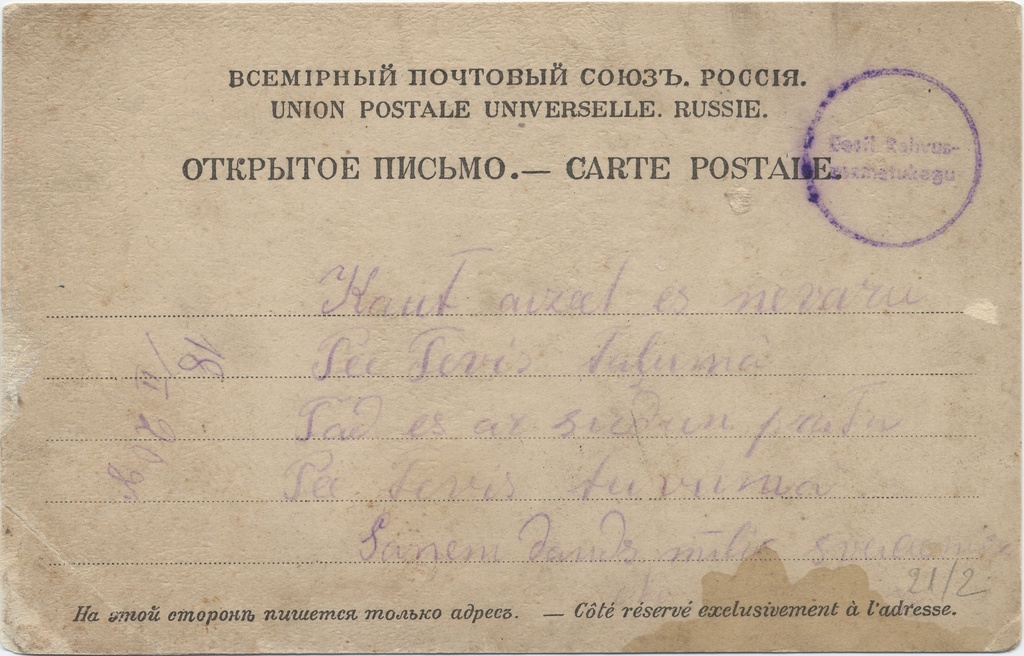 ВСЕМІРНЫЙ ПОЧТОВЫЙ СОЮЗЪ. РОССІЯ.
UNION POSTALE UNIVERSELLE. RUSSIE.
ОТКРЫТОЕ ПИСЬМО.— CARTE POSTALE.
Eesti Rahvus-
raamatukogu
Kaut aizeet es nevaru
Pee Tevis tuluma
Tad es ar sirdun pratu
Pee Tevis tuvuma
Sanem daudz
21/2
На этой сторонѣ пишется только адресъ. — Côté réservé exelusivement à l'adresse.